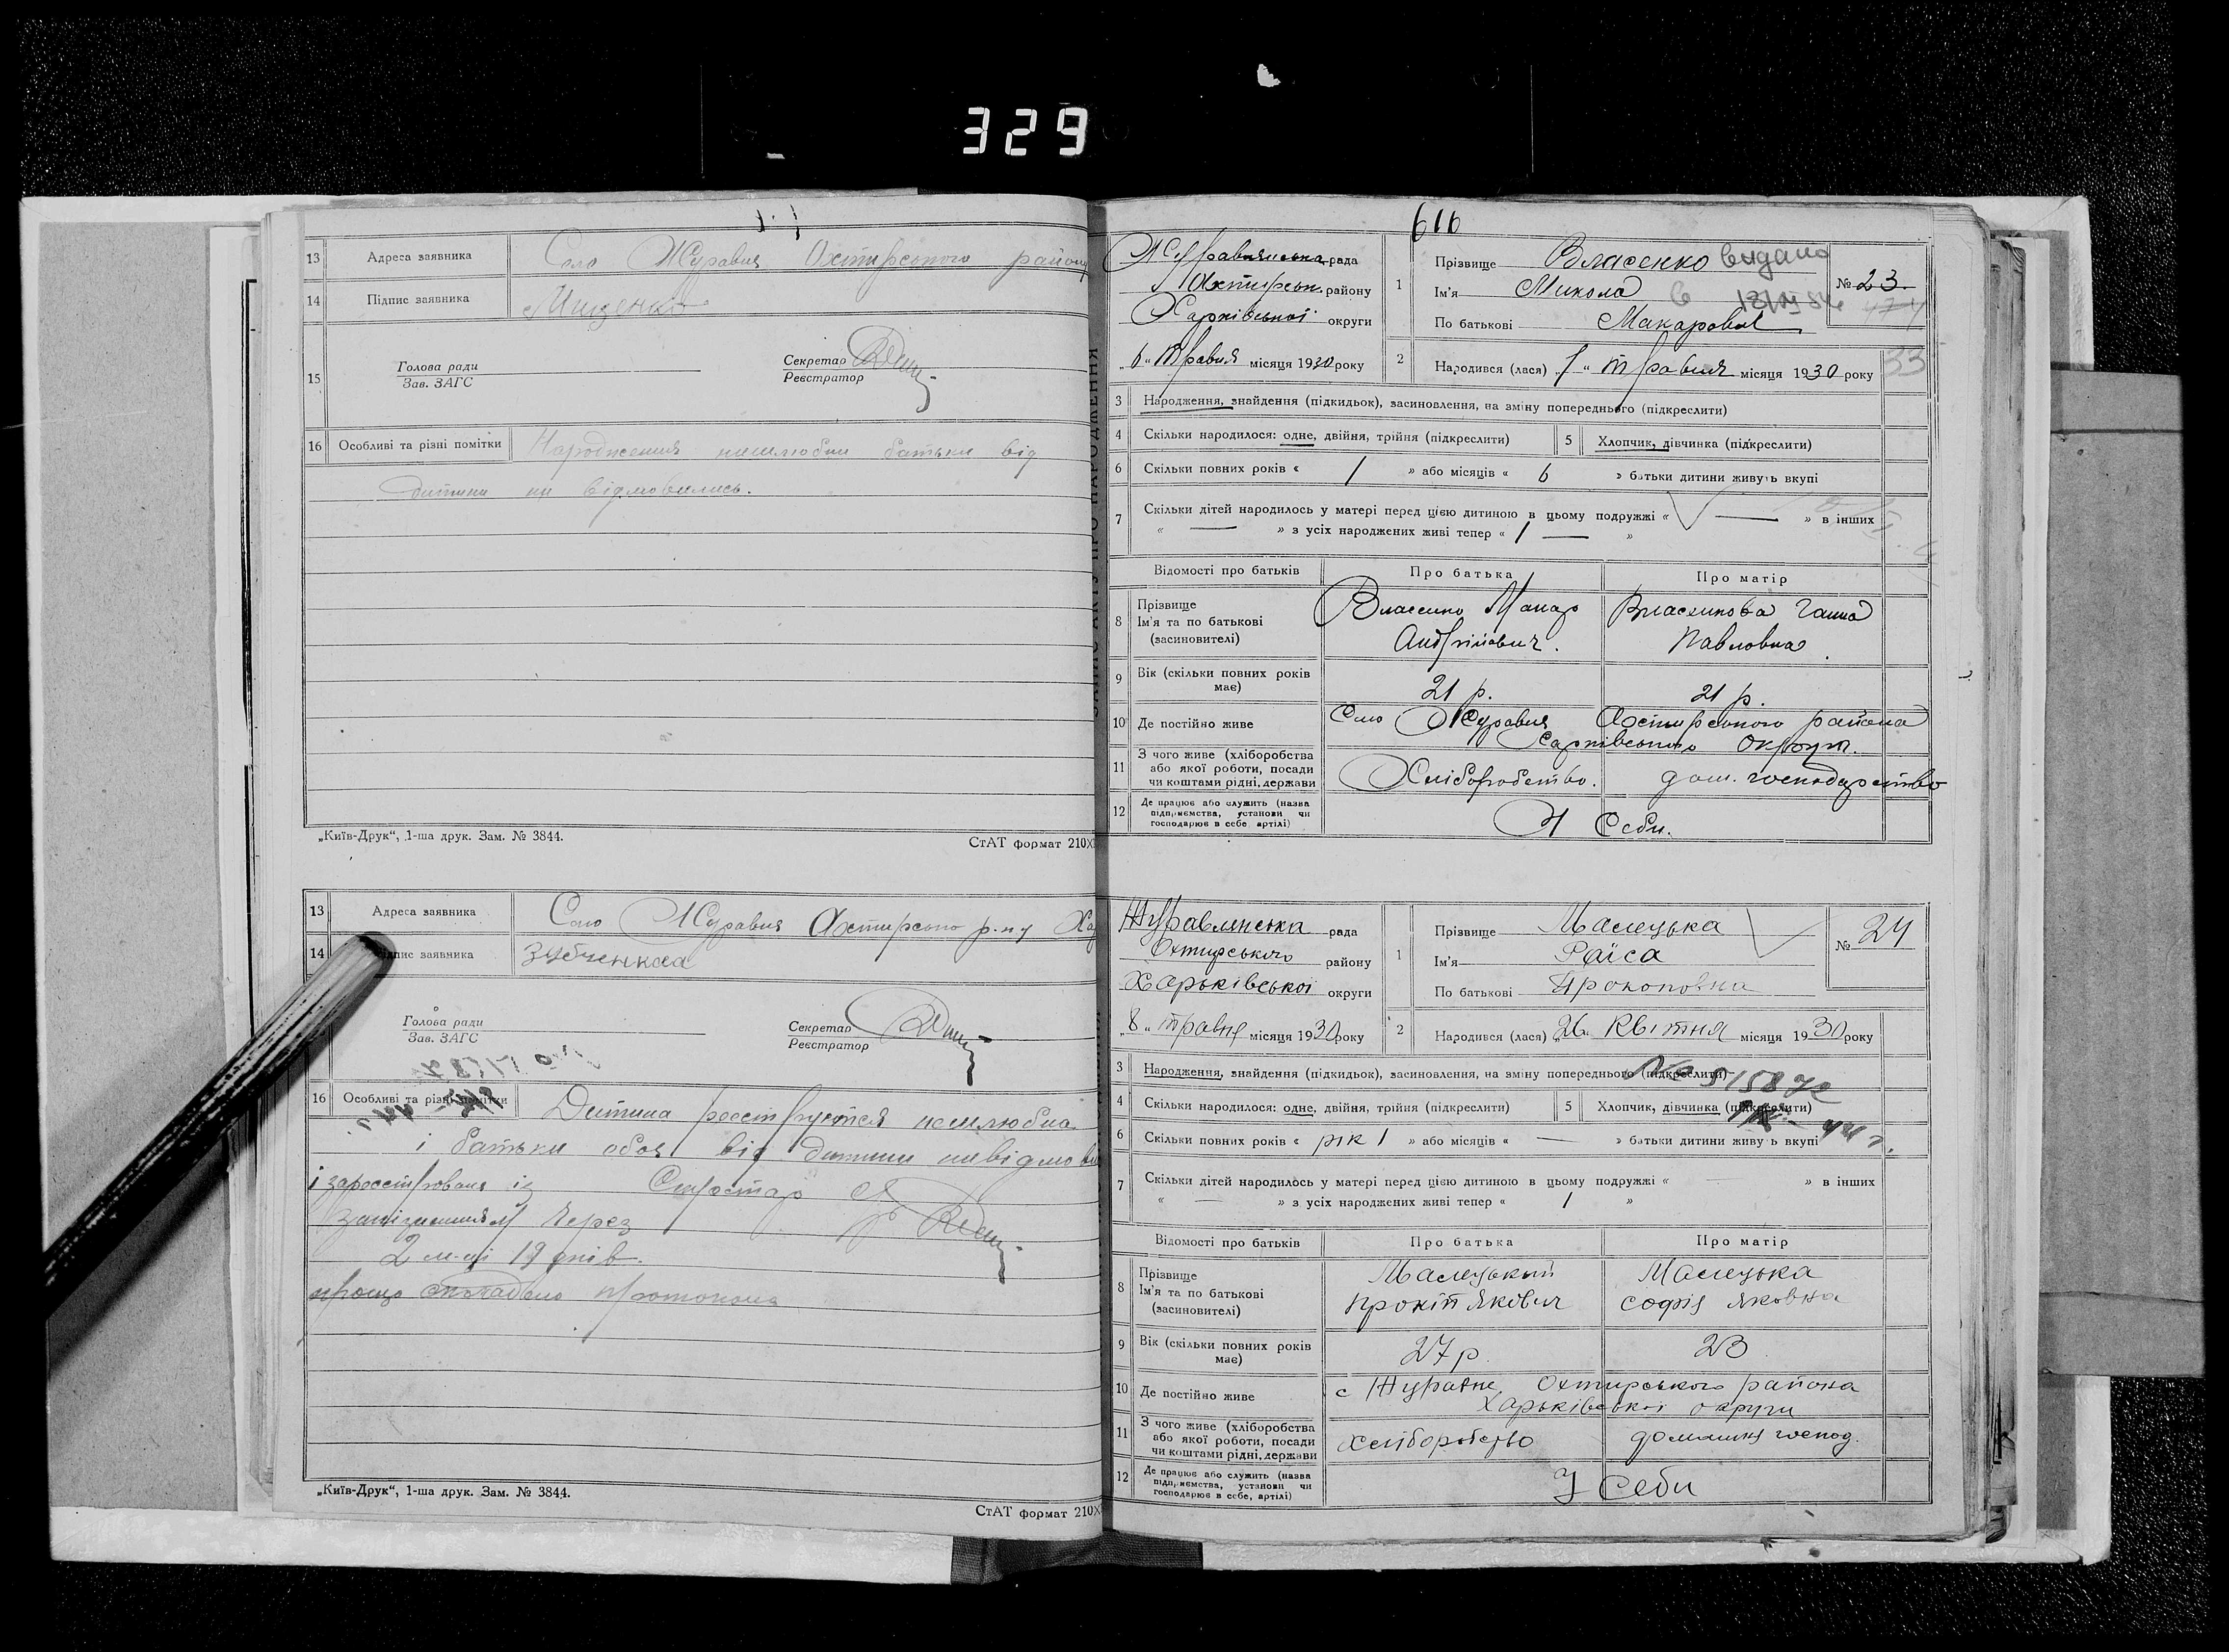 329
13 Адреса заявника Село Журавня Охтирського району
14 Підпис заявника Мищенко
15 Голова ради
Зав. ЗАГС
Секретар
Реєстратор
16 Особливі та різні помітки Народження нешлюбни батьки від
дитини ни відмовились.
„Київ-Друк“, 1-ша друк. Зам. № 3844.
СтАТ формат 210X
13 Адреса заявника Село Журавня Охтирсько р-ну Хар
14 Підпис заявника Зубченкаа
Голова ради
Зав. ЗАГС
Секретар
Реєстратор
16 Особливі та різні помітки Дитина реєструются нешлюбна
і батьки обоя від дитини невідмови
і зареєстрована із Сикретар
запізненням через
2 м-ці 19 днів.
прощо складено протокола
„Київ-Друк“, 1-ша друк. Зам. № 3844.
СтАТ формат 210X
616
Журавлянська рада
Охтирськ. району
Харківської округи
„6“ Травня місяця 1930 року
1 Прізвище Власенко видано
Ім'я Микола в
По батькові Макарович
№ 23.
2 Народився (лася) „1“ травня місяця 1930 року 33
3 Народження, знайдення (підкидьок), засиновлення, на зміну попереднього (підкреслити)
4 Скільки народилося: одне, двійня, трійня (підкреслити) 5 Хлопчик, дівчинка (підкреслити)
6 Скільки повних років « 1 » або місяців « 6 » батьки дитини живуть вкупі
7 Скільки дітей народилось у матері перед цією дитиною в цьому подружжі « — » в інших
« — » з усіх народжених живі тепер « 1 — »
Відомості про батьків Про батька Про матір
8 Прізвище
Ім'я та по батькові
(засиновителі)
Власенко Макар
Андрійович.
Власенкова Ганна
Павловна.
9 Вік (скільки повних років має) 21 р. 21 р.
10 Де постійно живе Село Журавня Охтирського района
Харківського Округи.
11 З чого живе (хліборобства
або якої роботи, посади
чи коштами рідні, держави
Хліборобство. дом. господарство
12 Де працює або служить (назва
підприємства, установи чи
господарює в себе, артілі)
У Себи.
Журавлянська рада
Охтирського району
Харьківської округи
„8“ травня місяця 1930 року
1 Прізвище Малецька
Ім'я Раїса
По батькові Прокоповна
№ 24
2 Народився (лася) „26“ Квітня місяця 1930 року
3 Народження, знайдення (підкидьок), засиновлення, на зміну попереднього (підкреслити)
4 Скільки народилося: одне, двійня, трійня (підкреслити) 5 Хлопчик, дівчинка (підкреслити)
6 Скільки повних років « рік 1 » або місяців « — » батьки дитини живуть вкупі
7 Скільки дітей народилось у матері перед цією дитиною в цьому подружжі « — » в інших
« — » з усіх народжених живі тепер « 1 »
Відомості про батьків Про батька Про матір
8 Прізвище
Ім'я та по батькові
(засиновителі)
Малецький
Прокіп Яківич
Малецька
Софія Яковна
9 Вік (скільки повних років має) 27 р. 23
10 Де постійно живе с Журавне Охтирського района
Харьківської округи
11 З чого живе (хліборобства
або якої роботи, посади
чи коштами рідні, держави
хліборобство домашнэ господ.
12 Де працює або служить (назва
підприємства, установи чи
господарює в себе, артілі)
У Себи